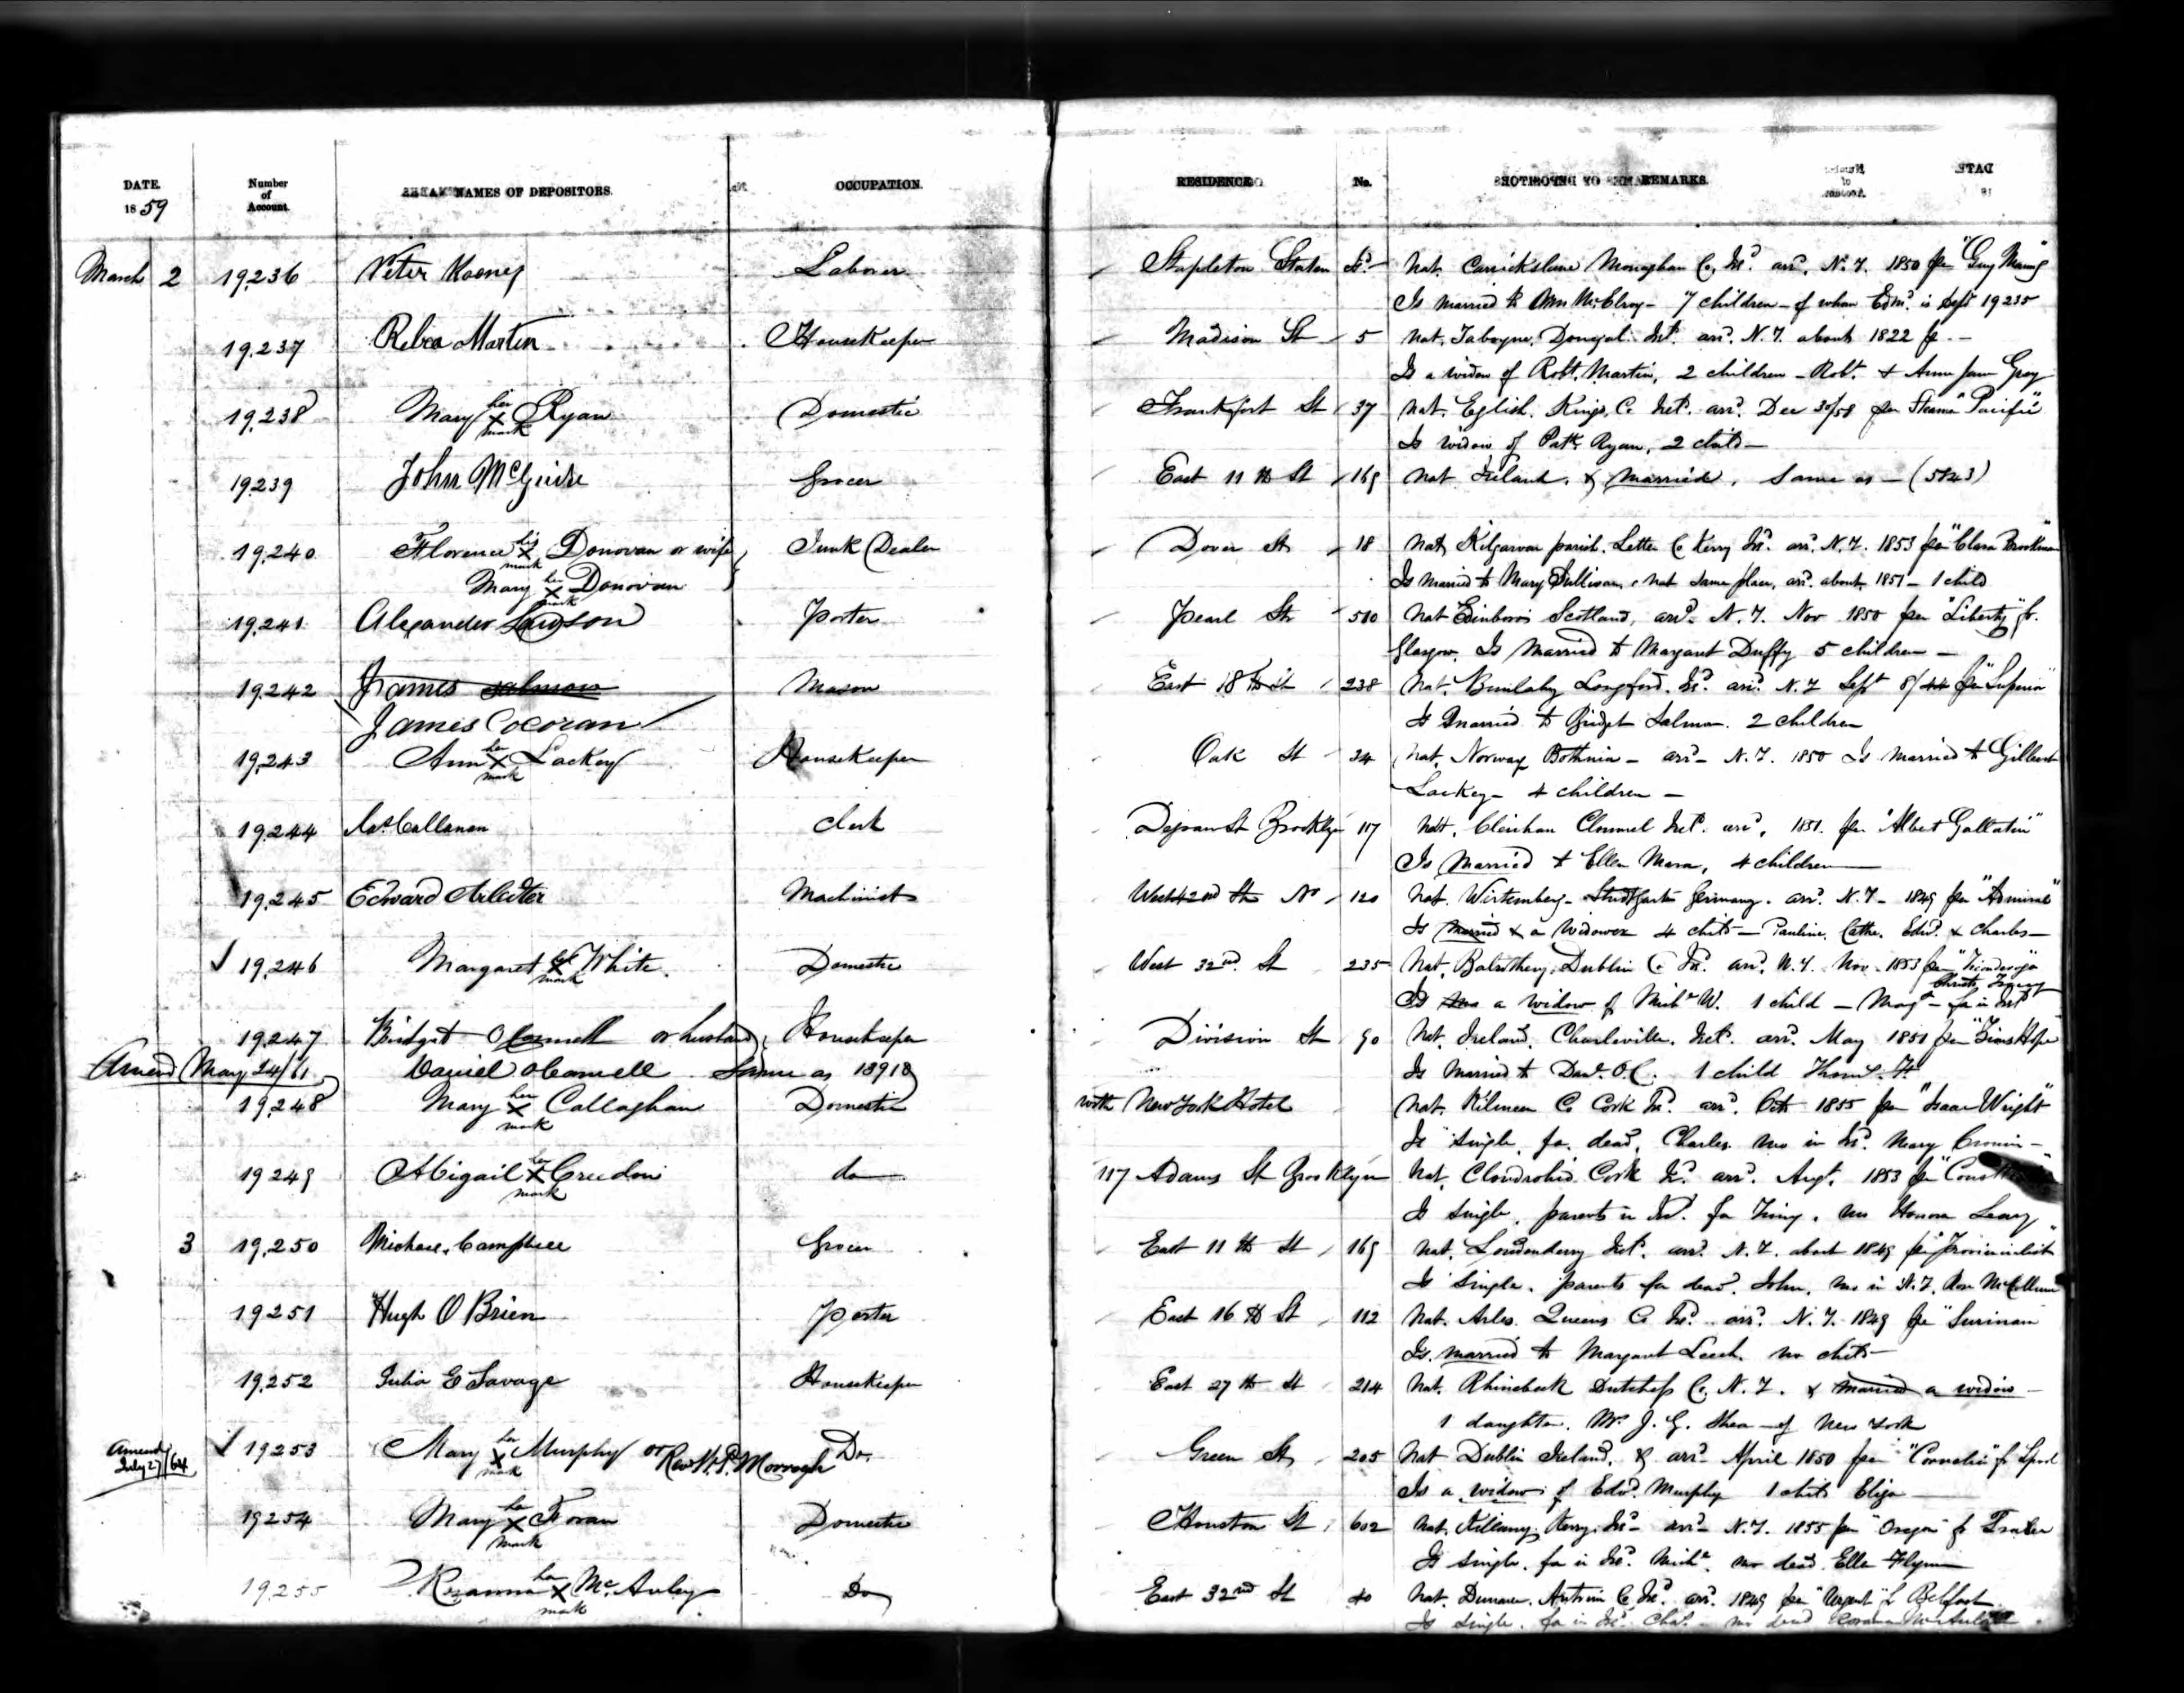 DATE. Number of Account. NAMES OF DEPOSITORS. OCCUPATION. RESIDENCE No. REMARKS.
1859
March 2 19,236 Peter Rooney Laborer Stapleton Staten Isd. Nat. Monaghan Co, Ird. arrd. N.Y. 1850 per "Guy Manng"
Is married to Ann McElroy - 7 children - of whom Edwd. is dept 19235
19,237 Martin Housekeeper Madison St 5 Nat. Donegal. Ireld. arrd. N.Y. about 1822 per -
Is a widow of Robt. Martin, 2 children - Robt. & Anne Jane Gray
19,238 Mary her X mark Ryan Domestic Frankfort St 37 Nat. Eglish, Kings Co Ireld. arrd. Dec 30/58 per Steamer "Pacific"
Is widow of Patk. Ryan, 2 childn -
19,239 John McGuire Grocer East 11th St 169 Nat. Ireland, & married, Same as -
19,240 Florence his X mark Donovan or wife Junk Dealer Dover St 18 Nat. Kilgarvan parish, Letter Co Kerry Ird. arrd. N.Y. 1853 per "Clara Brookman"
Mary her X mark Donovan Is married to Mary Sullivan, nat same place, arrd. about 1851 - 1 child
19,241 Alexander Lawson Porter Pearl St 510 Nat Edinboro Scotland, arrd. N.Y. Nov 1850 per "Liberty" fr.
Glasgow. Is Married to Margaret Duffy 5 children -
19,242 James Salmon Mason East 18th St 238 Nat. Longford. Ird. arrd. N.Y. Sept 8/44 per "Superior"
James Cocoran Is married to Bridget Salmon. 2 children
19,243 Ann her X mark Lackey Housekeeper Oak St 34 Nat. Norway Bothnia - arrd - N.Y. 1850 Is married to Gilbert
Lackey - 4 children -
19,244 Jas. Callanan Clerk St Brooklyn 117 Nat. Clonmel Ireld. arrd. 1851. per "Albert Gallatin"
Is Married to Ellen Mara, 4 children
19,245 Edward Machinist West 42nd St No 120 Nat. Wirtemberg - Germany. arrd. N.Y. - 1849 per "Admiral"
Is married & a Widower 4 childn - Pauline, Cathe. Edwd. & Charles -
19,246 Margaret her X mark White. Domestic West 32nd. St 235 Nat. Balrothery, Dublin Co Ird. arrd. N.Y. Nov. 1853 per "Ticonderoga"
Is a widow of Michl W. 1 child - Margt - fa in Ird
19,247 Bridget OConnell or husband Housekeeper Division St 90 Nat. Ireland, Charleville, Ireld. arrd. May 1851 per
Amend May 24/61 Daniel OConnell Same as 18918 Is Married to Danl. O.C. 1 child
19,248 Mary her X mark Callaghan Domestic with New York Hotel Nat. Kilmeen Co Cork Ird. arrd. Oct 1855 per "Isaac Wright"
Is single. fa. dead, Charles. mo in Ird. Mary Cronin -
19249 Abigail her X mark Creedon do 117 Adams St Brooklyn Nat. Clondrohid Cork Ird. arrd. Augt. 1853 per
Is single, parents in Ird. fa Timy. mo Honora Leary
3 19,250 Michael Campbell Grocer East 11th St 169 Nat. Londonderry Ireld. arrd. N.Y. about 1849 per "Provincialist"
Is Single. parents fa dead. John, mo in N.Y. McCollum
19251 Hugh O Brien Porter East 16th St 112 Nat. Arles. Queens Co Ird. arrd. N.Y. 1849 per "Surinam
Is married to Margaret Leech. no childn -
19,252 Julia E Savage Housekeeper East 27th St 214 Nat. Rhinebeck Dutchess Co. N.Y. & married a widow -
1 daughter. Mrs J. G. Shea - of New York
Amend July 27/64 19253 Mary her X mark Murphy or Rev Morrogh Do. Green St 205 Nat Dublin Ireland, & arrd April 1850 per "Cornelia" fr Lpool
Is a widow of Edwd. Murphy 1 child Eliza
19254 Mary her X mark Foran Domestic Houston St 602 Nat. Kerry. Ird - arrd - N.Y. 1855 per "Oregon" fr Tralee
Is single. fa in Ird. Michl. mo dead Ellen Flynn
19,255 Rosanna her X mark McAuley Do East 32nd St 40 Nat. Antrim Co Ird. arrd. 1849 per "Argent" fr Belfast
Is single. fa in Ird. Chas. - mo dead